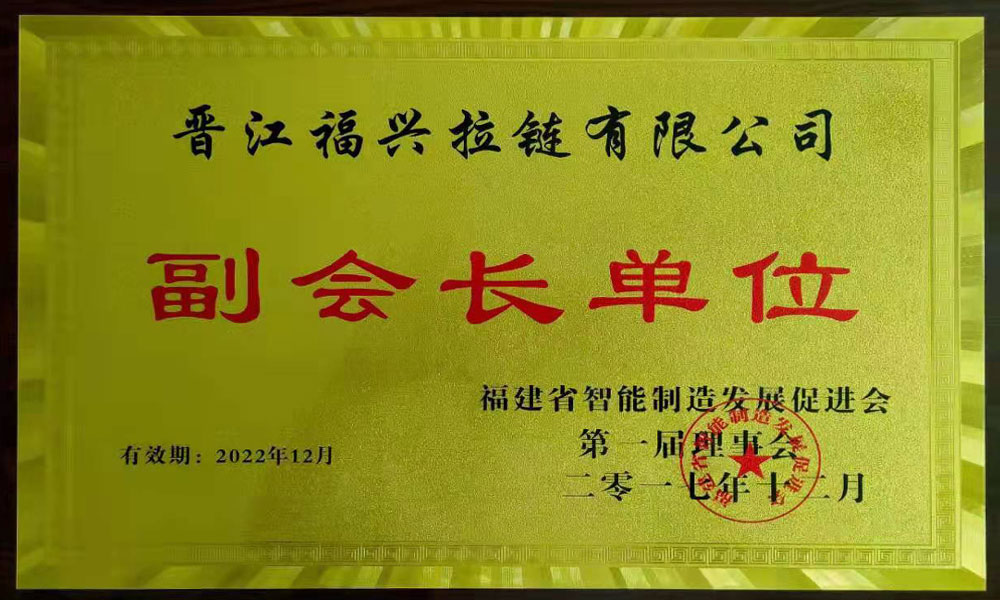 晋江福兴拉链有限公司
副会长单位
福建省智能制造发展促进会
第一届理事会
有效期：2022年12月
二零一七年十二月
福建省智能制造发展促进会